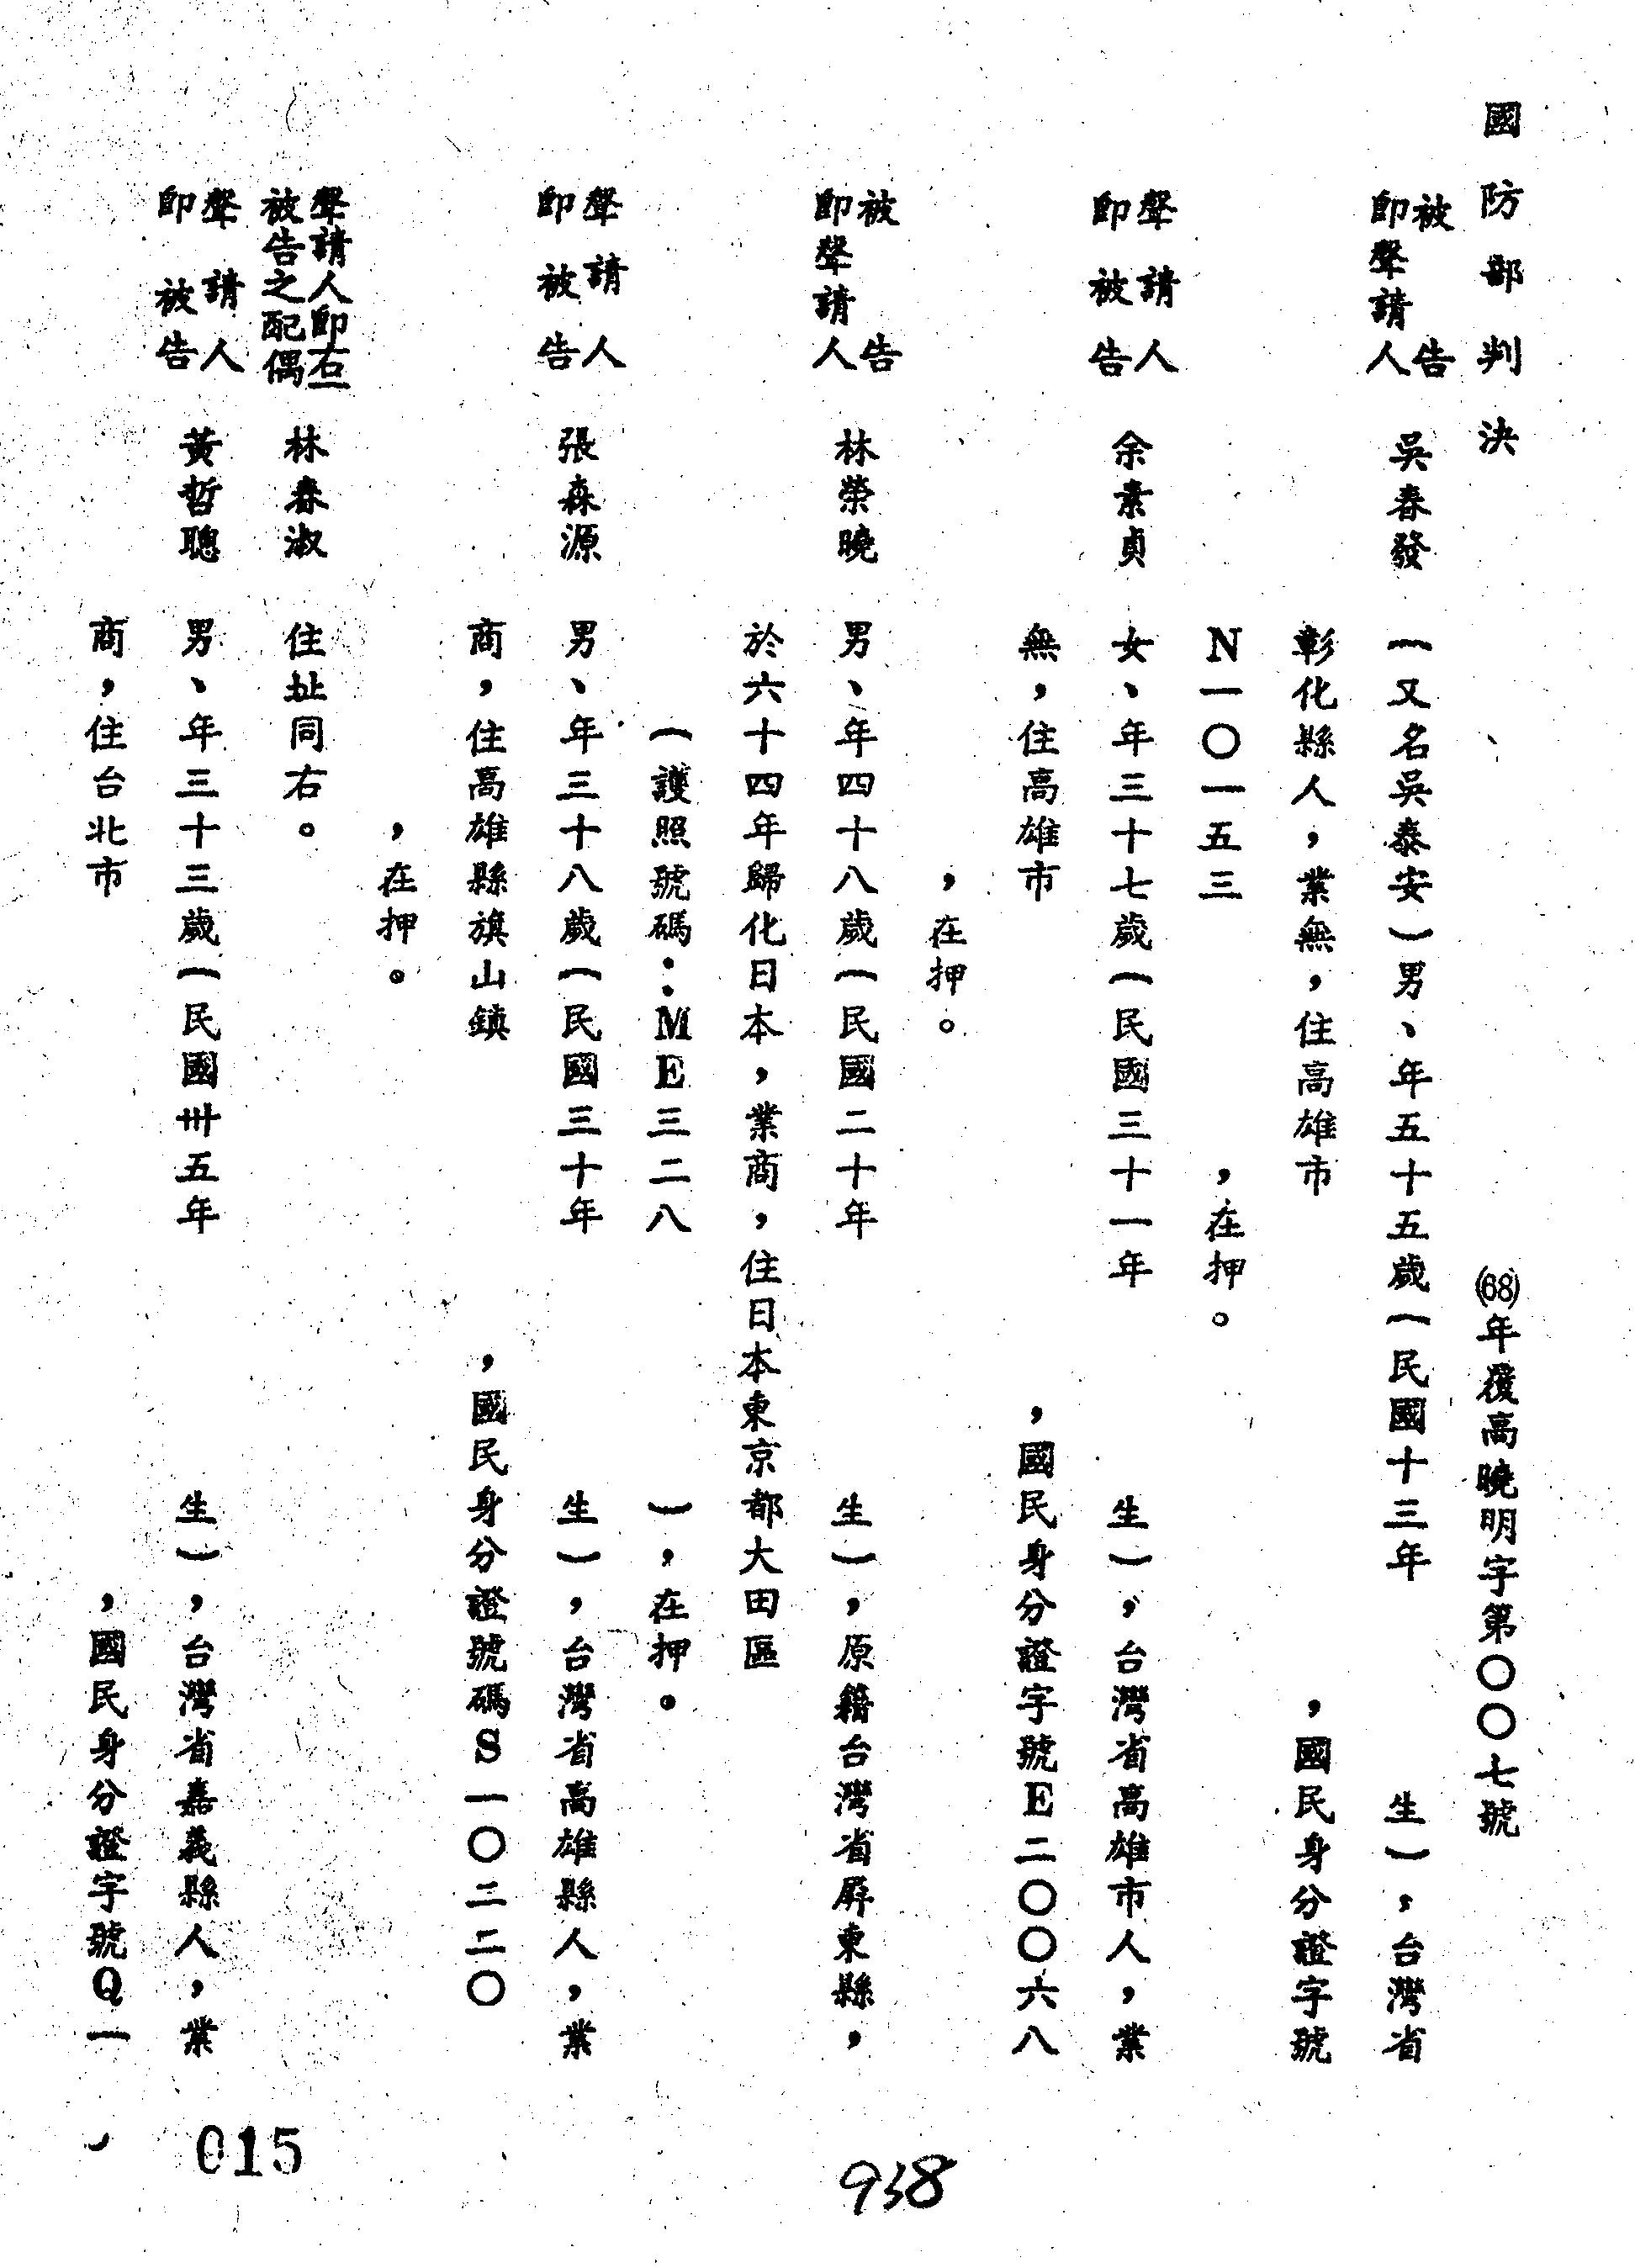 國防部判決
(68)年覆高曉明字第〇〇七號
被告
即聲請人
吳春發
(又名吳泰安)男、年五十五歲(民國十三年
生),台灣省
彰化縣人,業無,住高雄市
,國民身分證字號
N一〇一五三
,在押。
聲請人
即被告
余素貞
女、年三十七歲(民國三十一年
生),台灣省高雄市人,業
無,住高雄市
,國民身分證字號E二〇〇六八
,在押。
被告
即聲請人
林榮曉
男、年四十八歲(民國二十年
生),原籍台灣省屏東縣,
於六十四年歸化日本,業商,住日本東京都大田區
(護照號碼:ME三二八
),在押。
聲請人
即被告
張森源
男、年三十八歲(民國三十年
生),台灣省高雄縣人,業
商,住高雄縣旗山鎮
,國民身分證號碼S一〇二二〇
,在押。
聲請人即右一
被告之配偶
林春淑
住址同右。
聲請人
即被告
黃哲聰
男、年三十三歲(民國卅五年
生),台灣省嘉義縣人,業
商,住台北市
,國民身分證字號Q一
015
938